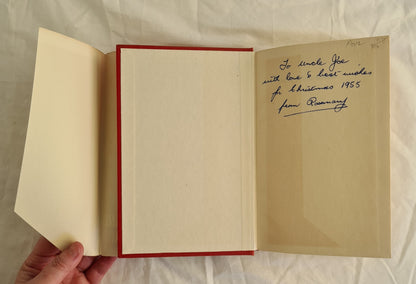 To Uncle Joe
with love & best wishes
for Christmas 1955
from Rosemary